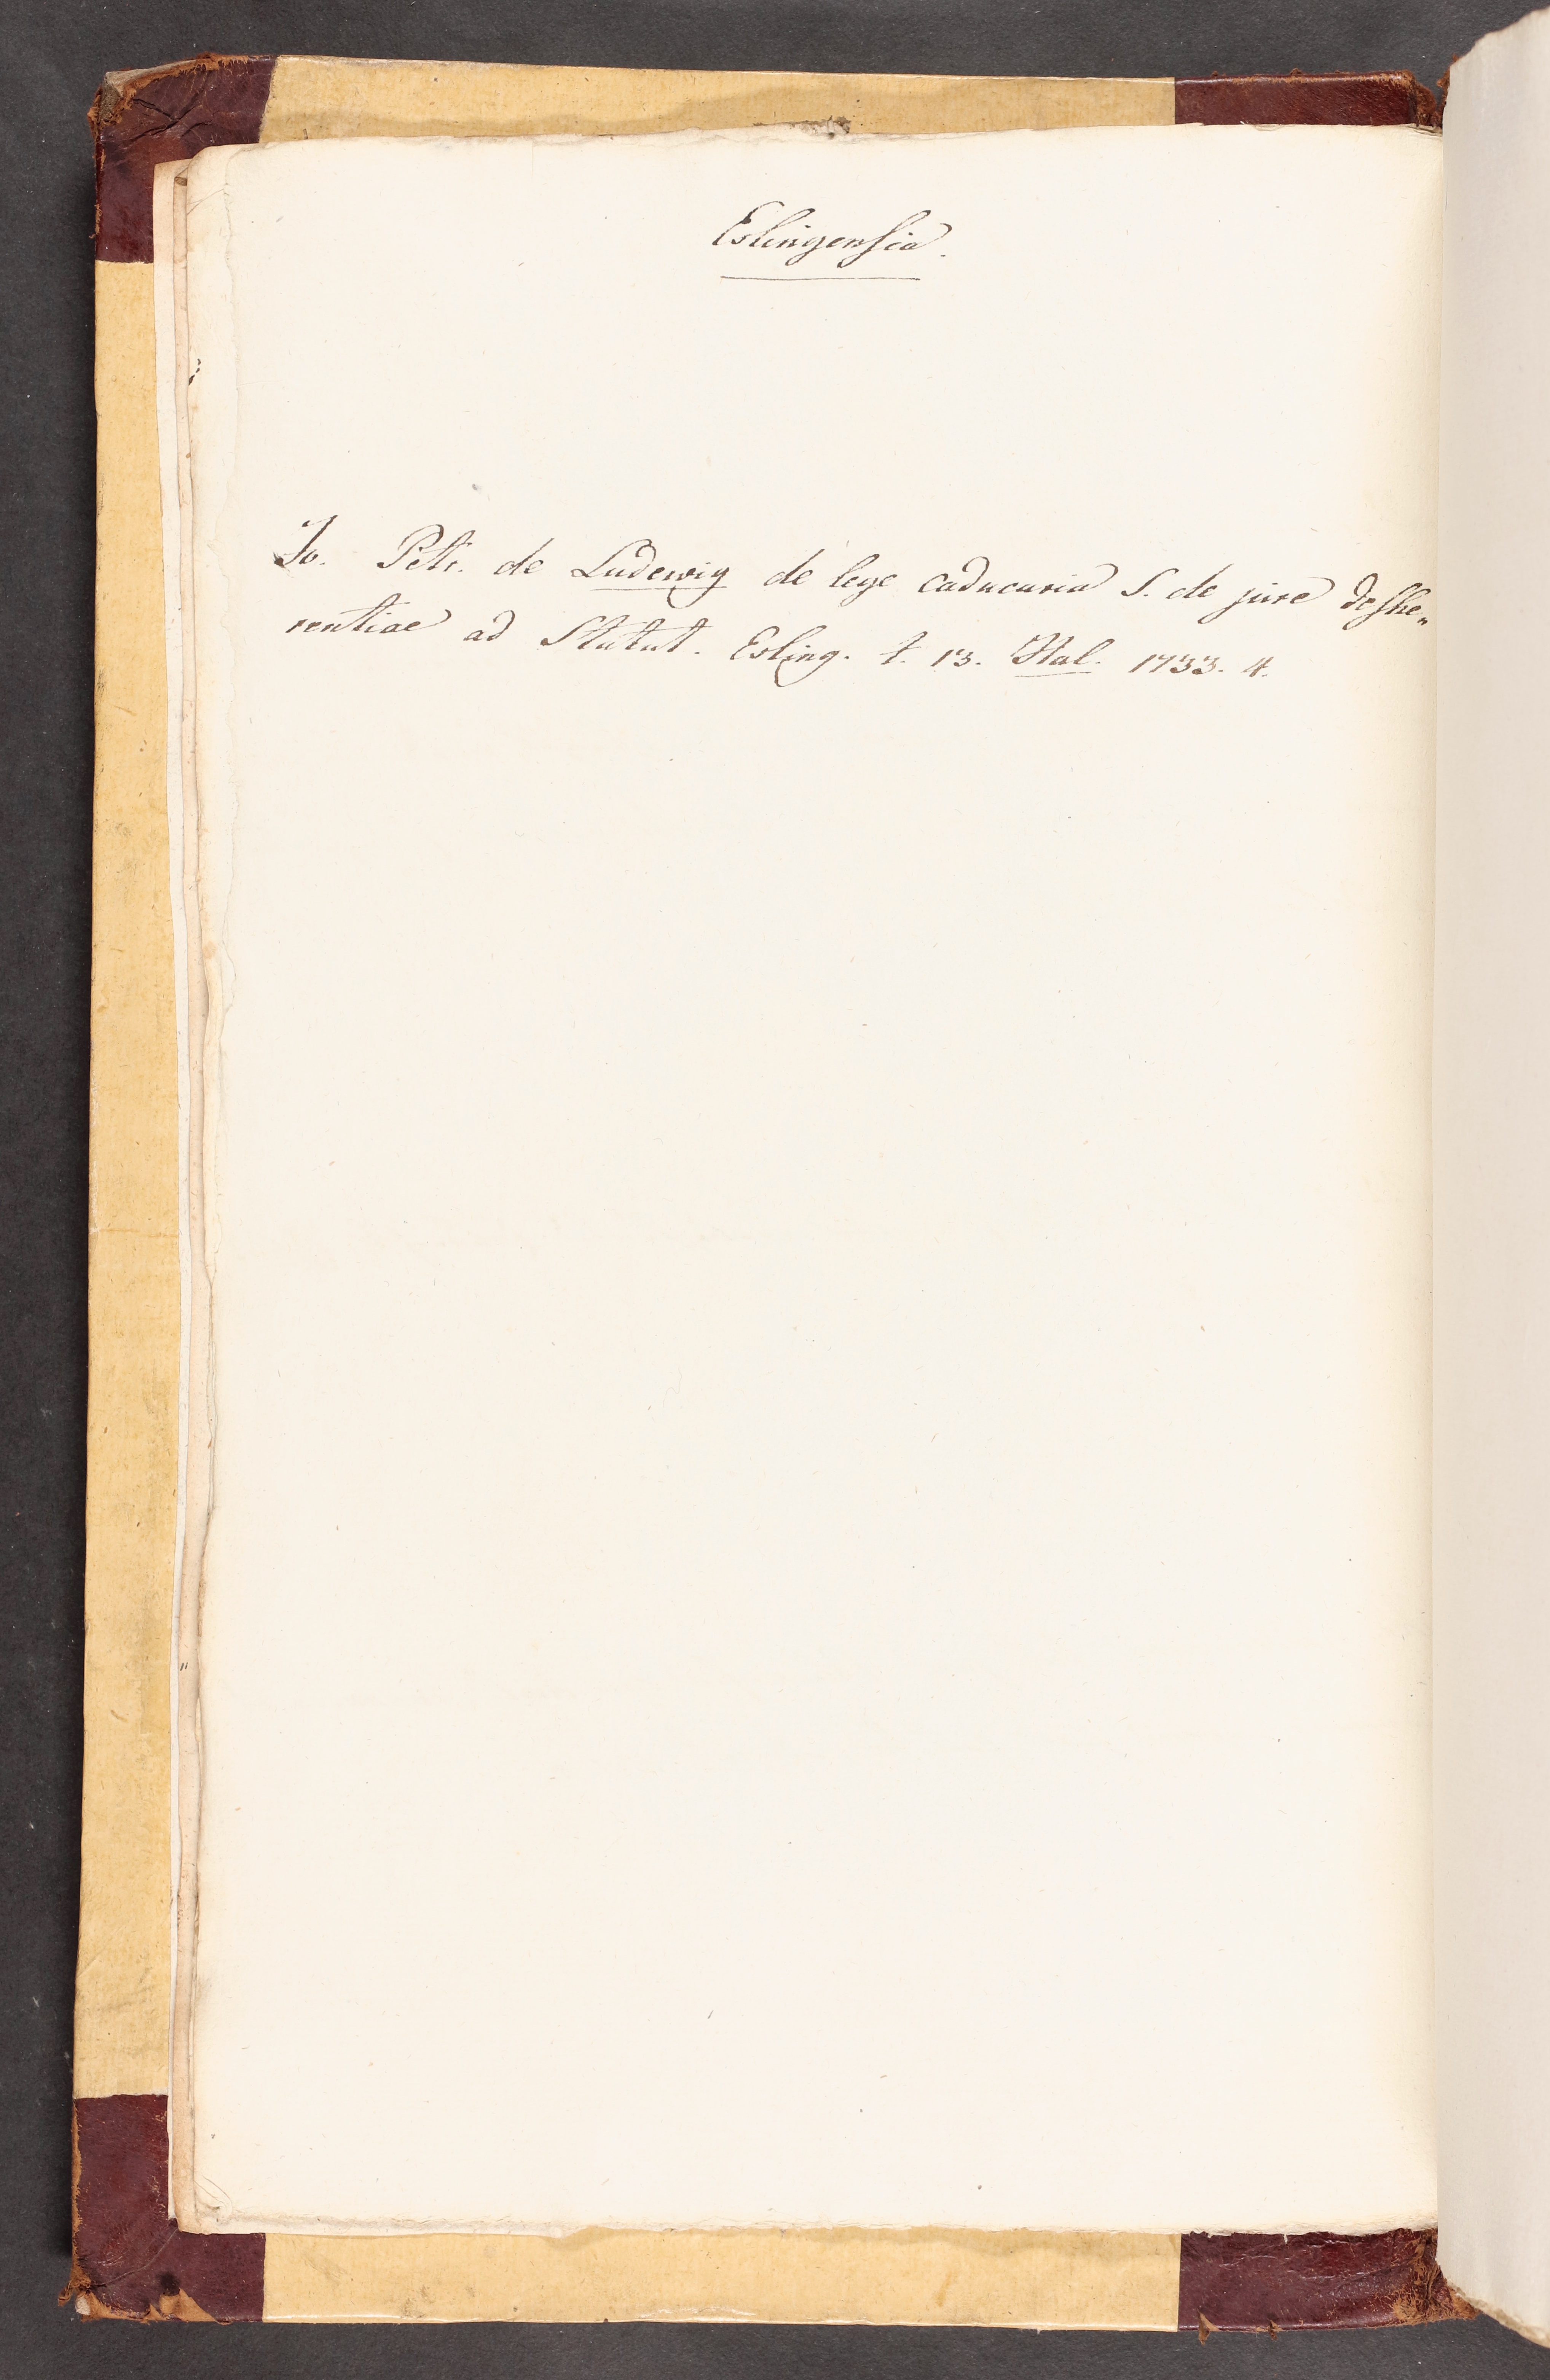 Eslingensia.
Jo. Petr. de Ludewig de lege caducaria S. de jure deshe„
rentiae ad Statut. Esling. t. 13. Hal. 1733. 4.